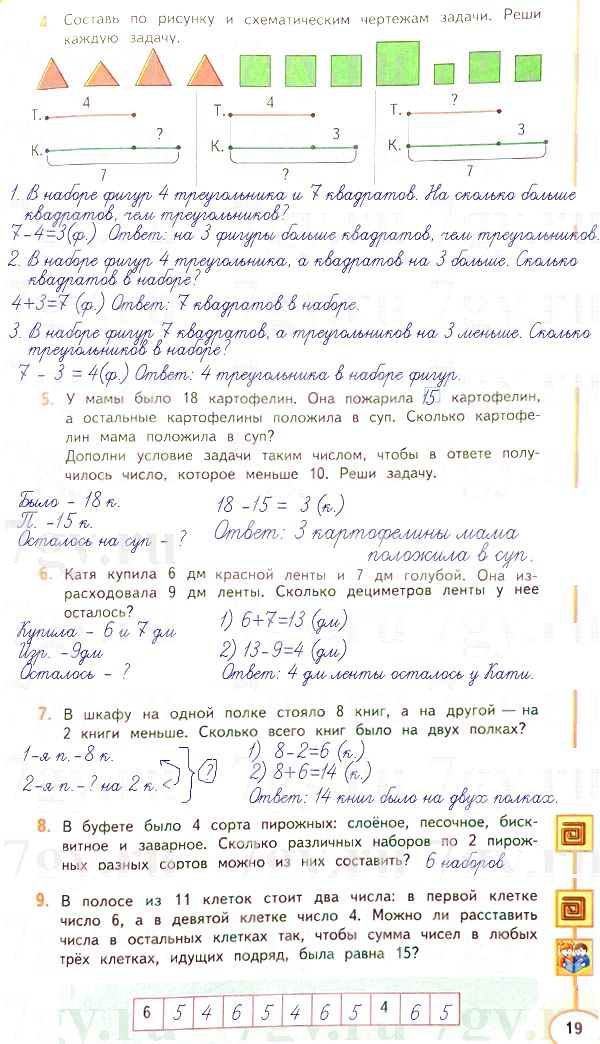 4 Составь по рисунку и схематическим чертежам задачи. Реши
каждую задачу.
4 4 ?
Т. Т. Т.
? 3 3
К. К. К.
7 ? 7
1. В наборе фигур 4 треугольника и 7 квадратов. На сколько больше
квадратов, чем треугольников?
7-4=3(ф.) Ответ: на 3 фигуры больше квадратов, чем треугольников.
2. В наборе фигур 4 треугольника, а квадратов на 3 больше. Сколько
квадратов в наборе?
4+3=7 (ф.) Ответ: 7 квадратов в наборе.
3. В наборе фигур 7 квадратов, а треугольников на 3 меньше. Сколько
треугольников в наборе?
7 - 3 = 4(ф.) Ответ: 4 треугольника в наборе фигур.
5. У мамы было 18 картофелин. Она пожарила 15 картофелин,
а остальные картофелины положила в суп. Сколько картофе-
лин мама положила в суп?
Дополни условие задачи таким числом, чтобы в ответе полу-
чилось число, которое меньше 10. Реши задачу.
Было - 18 к. 18 -15 = 3 (к.)
П. -15 к. Ответ: 3 картофелины мама
Осталось на суп - ? положила в суп.
6. Катя купила 6 дм красной ленты и 7 дм голубой. Она из-
расходовала 9 дм ленты. Сколько дециметров ленты у нее
осталось?
Купила - 6 и 7 дм 1) 6+7=13 (дм)
Изр. -9дм 2) 13-9=4 (дм)
Осталось - ? Ответ: 4 дм ленты осталось у Кати.
7. В шкафу на одной полке стояло 8 книг, а на другой — на
2 книги меньше. Сколько всего книг было на двух полках?
1-я п.-8 к. 1) 8-2=6 (к.)
2-я п.-? на 2 к. < ? 2) 8+6=14 (к.)
Ответ: 14 книг было на двух полках.
8. В буфете было 4 сорта пирожных: слоёное, песочное, биск-
витное и заварное. Сколько различных наборов по 2 пирож-
ных разных сортов можно из них составить? 6 наборов
9. В полосе из 11 клеток стоит два числа: в первой клетке
число 6, а в девятой клетке число 4. Можно ли расставить
числа в остальных клетках так, чтобы сумма чисел в любых
трёх клетках, идущих подряд, была равна 15?
6 5 4 6 5 4 6 5 4 6 5
19
7gv.ru